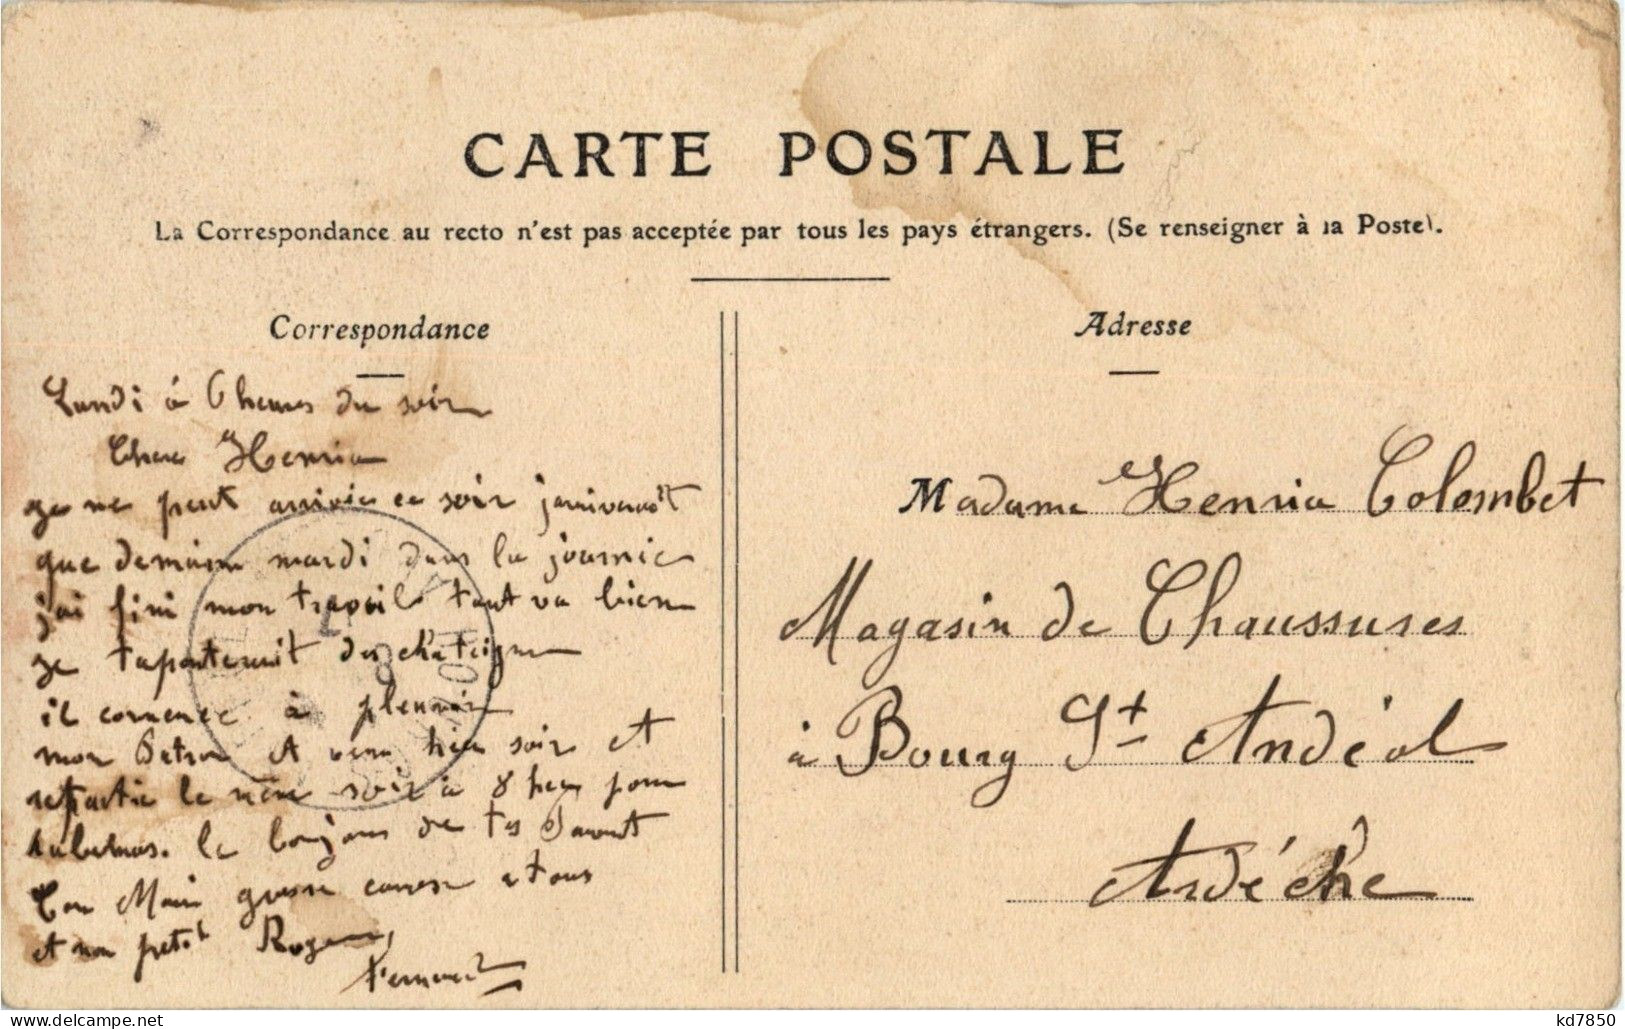 CARTE POSTALE
La Correspondance au recto n'est pas acceptée par tous les pays étrangers. (Se renseigner à la Poste).
Correspondance
Lundi à 6 heures du soir
Chere Henria
je ne peut arrivier ce soir jarriverait
que demain mardi dans la journie
jai fini mon travail tout va bien
je taporterait des chataigne
il comence à pleuvoir
mon Patron et venu hier soir et
repartie le même soir à 8 heu pour
Aubenas. le bonjour de tes Parent
Ton Mari grosse caresse a tous
et mon petit Roger
Fernand
Adresse
Madame Henria Colombet
Magasin de Chaussures
à Bourg St Andéol
Ardéche
kd7850